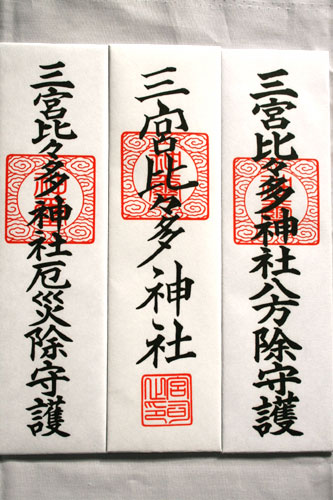 三宮比々多神社八方除守護
三宮比々多神社
三宮比々多神社厄災除守護